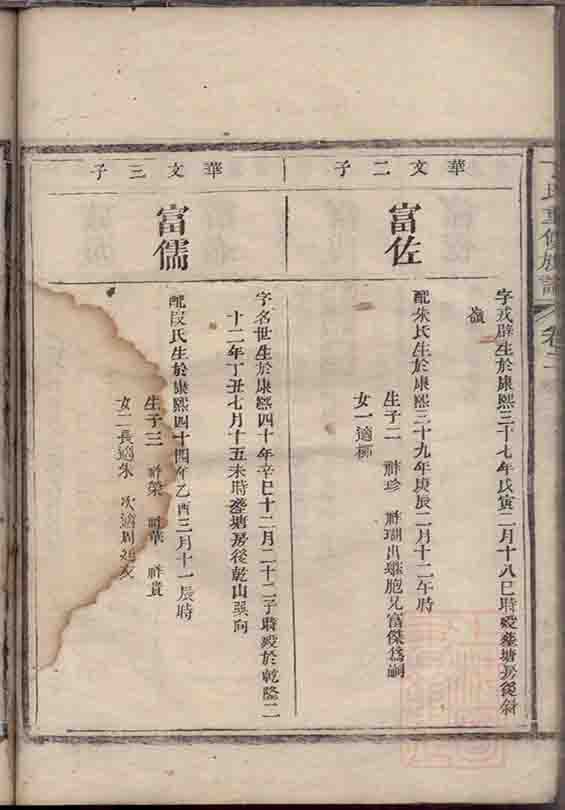 氏重修族譜 卷二
華文二子
富佐
字 辟生於康熙三十七年戊寅二月十八巳時歿葬塘房後斜
嶺
配朱氏生於康熙三十九年庚辰二月十二午時
生子二 祥珍 祥瑚出繼胞兄富傑爲嗣
女一適柳
華文三子
富儒
字名世生於康熙四十年辛巳十二月二十二子時歿於乾隆二
十二年丁丑七月十五未時葬塘房後乾山巽向
配段氏生於康熙四十四年乙酉三月十一辰時
生子三 祥榮 祥華 祥貴
女二長適朱 次適周